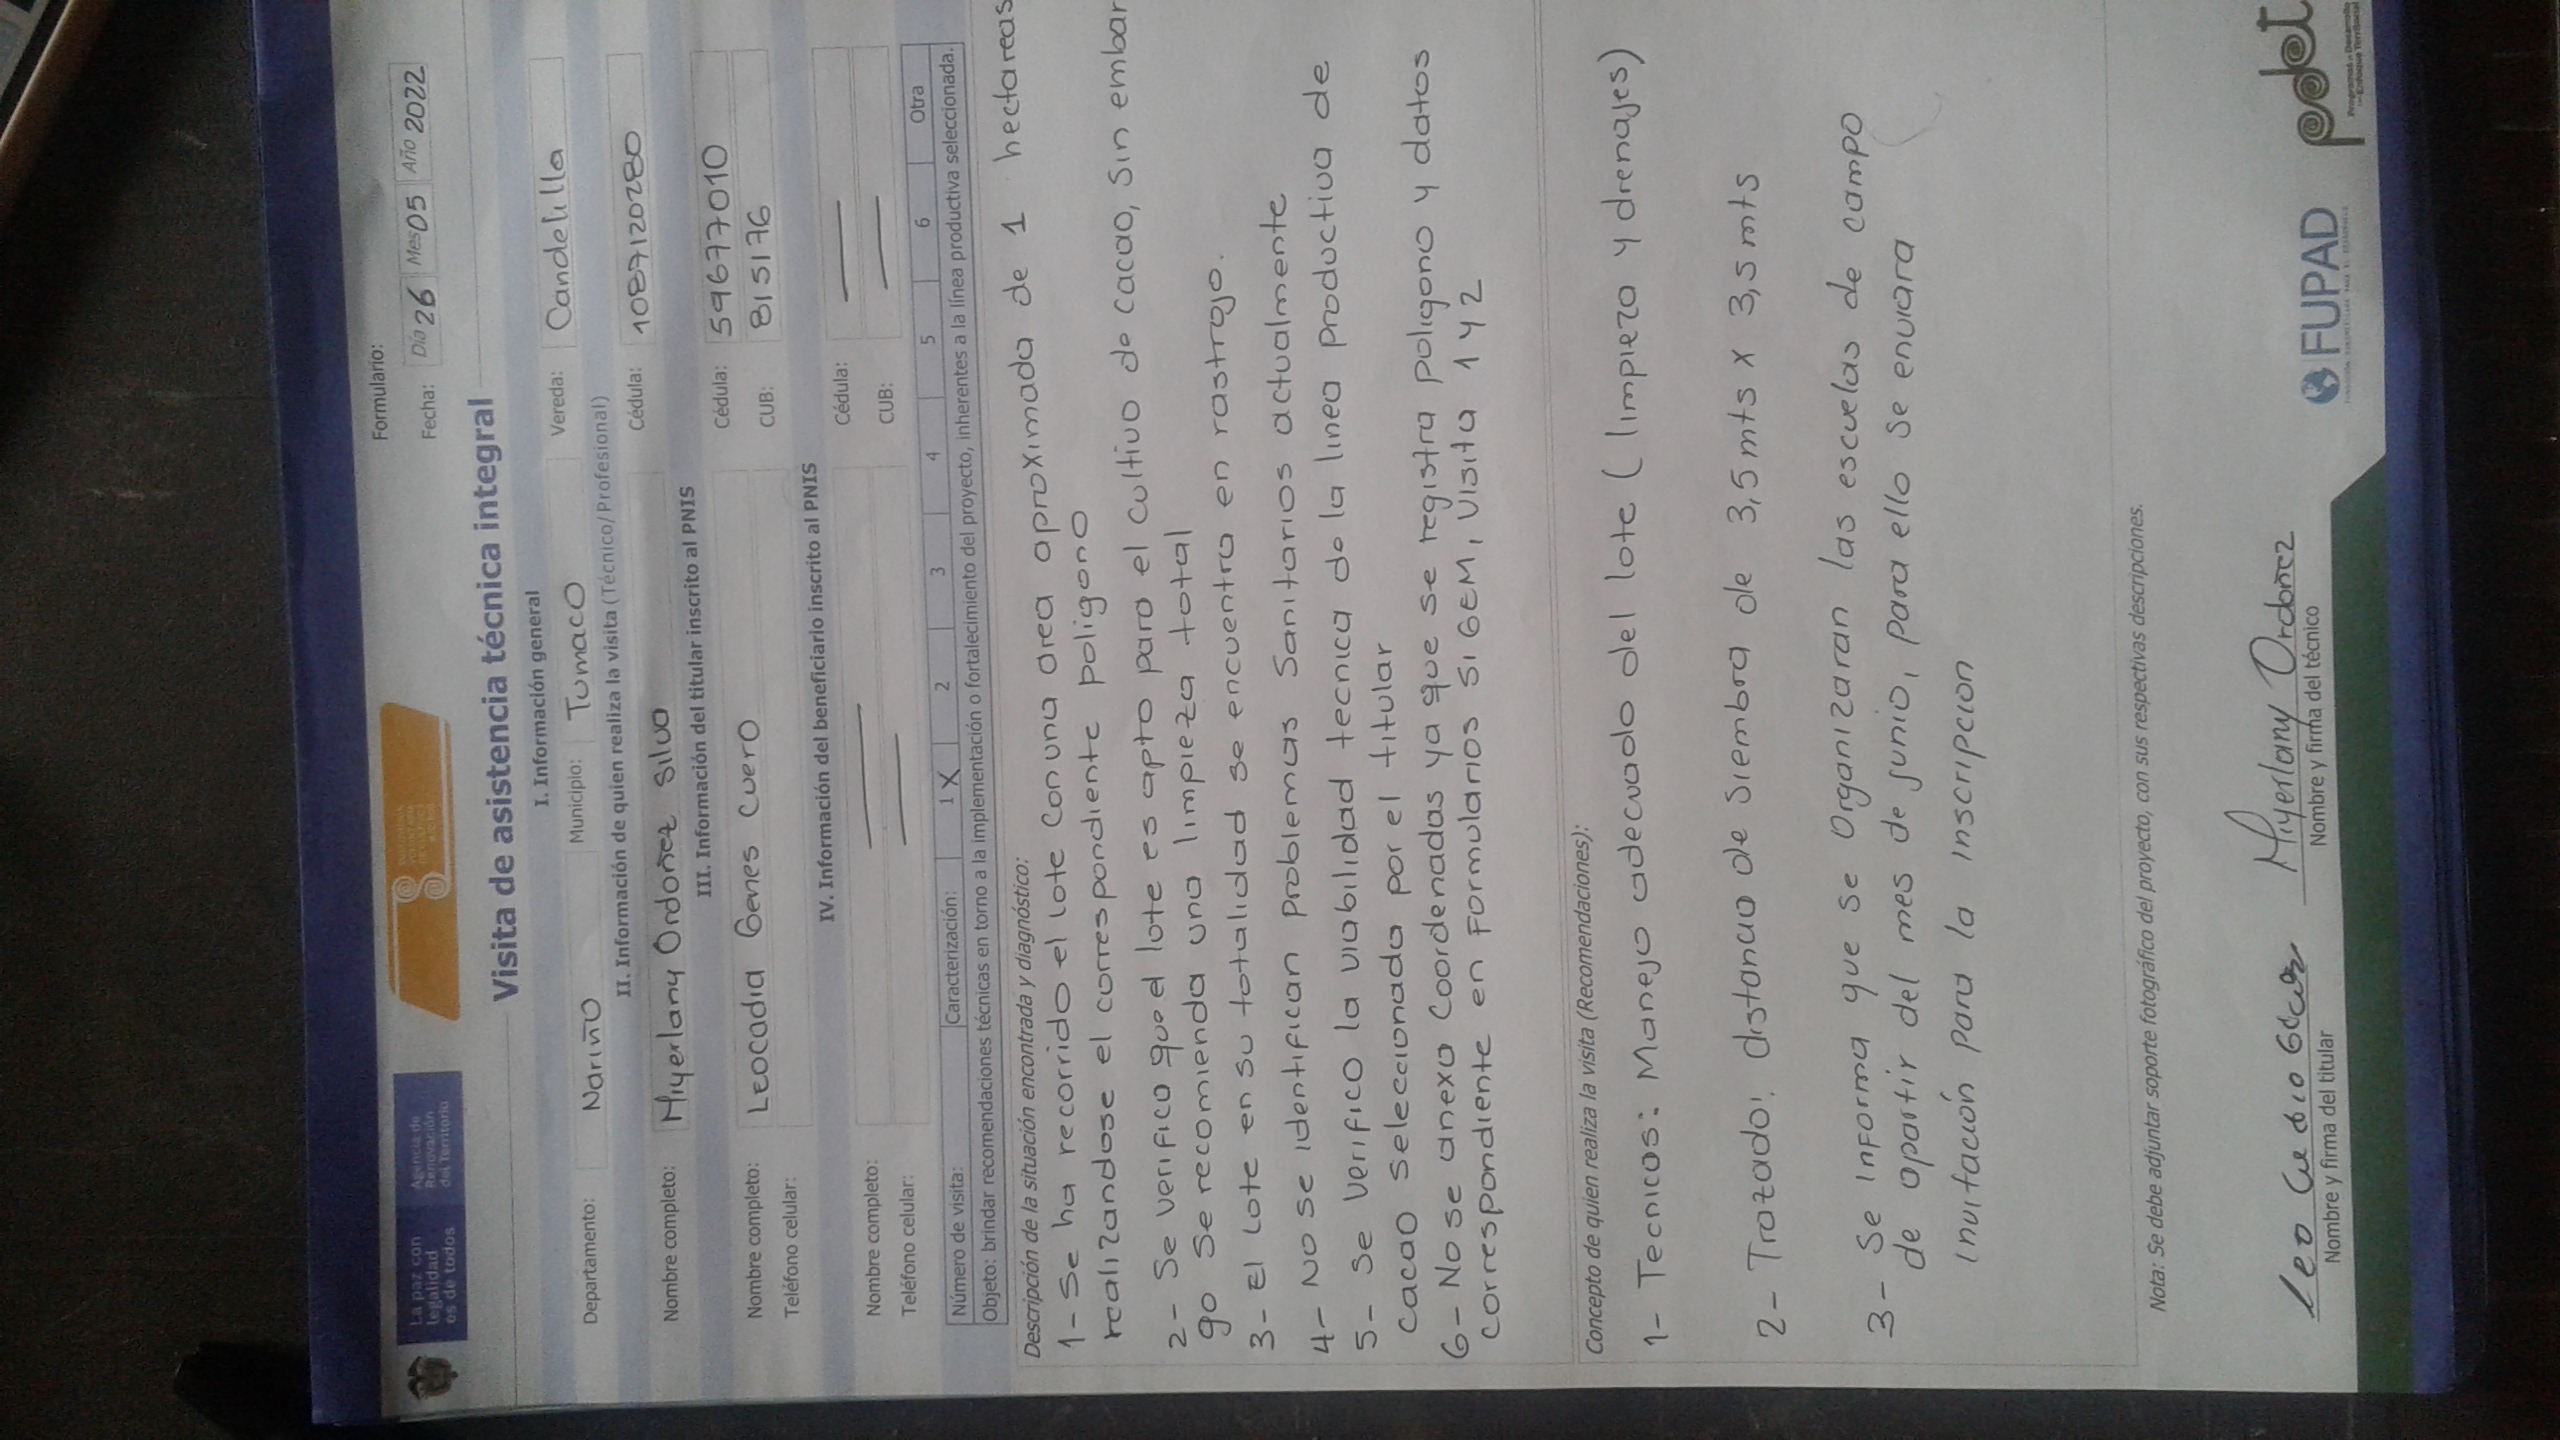 La paz con
legalidad
es de todos
Agencia de
Renovación
del Territorio
Formulario:
Fecha: Día 26 Mes 05 Año 2022
Visita de asistencia técnica integral
I. Información general
Departamento: Nariño Municipio: Tumaco Vereda: Candelilla
II. Información de quien realiza la visita (Técnico/Profesional)
Nombre completo: Miyerlany Ordoñez Silva Cédula: 1087120280
III. Información del titular inscrito al PNIS
Nombre completo: Leocadia Genes Cuero Cédula: 59677010
Teléfono celular: CUB: 815176
IV. Información del beneficiario inscrito al PNIS
Nombre completo: — Cédula: —
Teléfono celular: — CUB: —
Número de visita: Caracterización: 1 X 2 3 4 5 6 Otra
Objeto: brindar recomendaciones técnicas en torno a la implementación o fortalecimiento del proyecto, inherentes a la línea productiva seleccionada.
Descripción de la situación encontrada y diagnóstico:
1- Se ha recorrido el lote con una area aproximada de 1 hectareas
realizandose el correspondiente poligono
2- Se verifico que el lote es apto para el cultivo de cacao, sin embar
go se recomienda una limpieza total
3- El lote en su totalidad se encuentra en rastrojo.
4- No se identifican problemas sanitarios actualmente
5- Se verifico la viabilidad tecnica de la linea productiva de
cacao seleccionada por el titular
6- No se anexa coordenadas ya que se registra poligono y datos
correspondiente en formularios SIGEM, visita 1 y 2
Concepto de quien realiza la visita (Recomendaciones):
1- Tecnicos: Manejo adecuado del lote (limpieza y drenajes)
2- Trazado: distancia de siembra de 3,5 mts x 3,5 mts
3- Se informa que se organizaran las escuelas de campo
de apartir del mes de junio, para ello se enviara
invitación para la inscripcion
Nota: Se debe adjuntar soporte fotográfico del proyecto, con sus respectivas descripciones.
Miyerlany Ordoñez
Nombre y firma del titular Nombre y firma del técnico
FUPAD
pdet
Programas de Desarrollo
con Enfoque Territorial